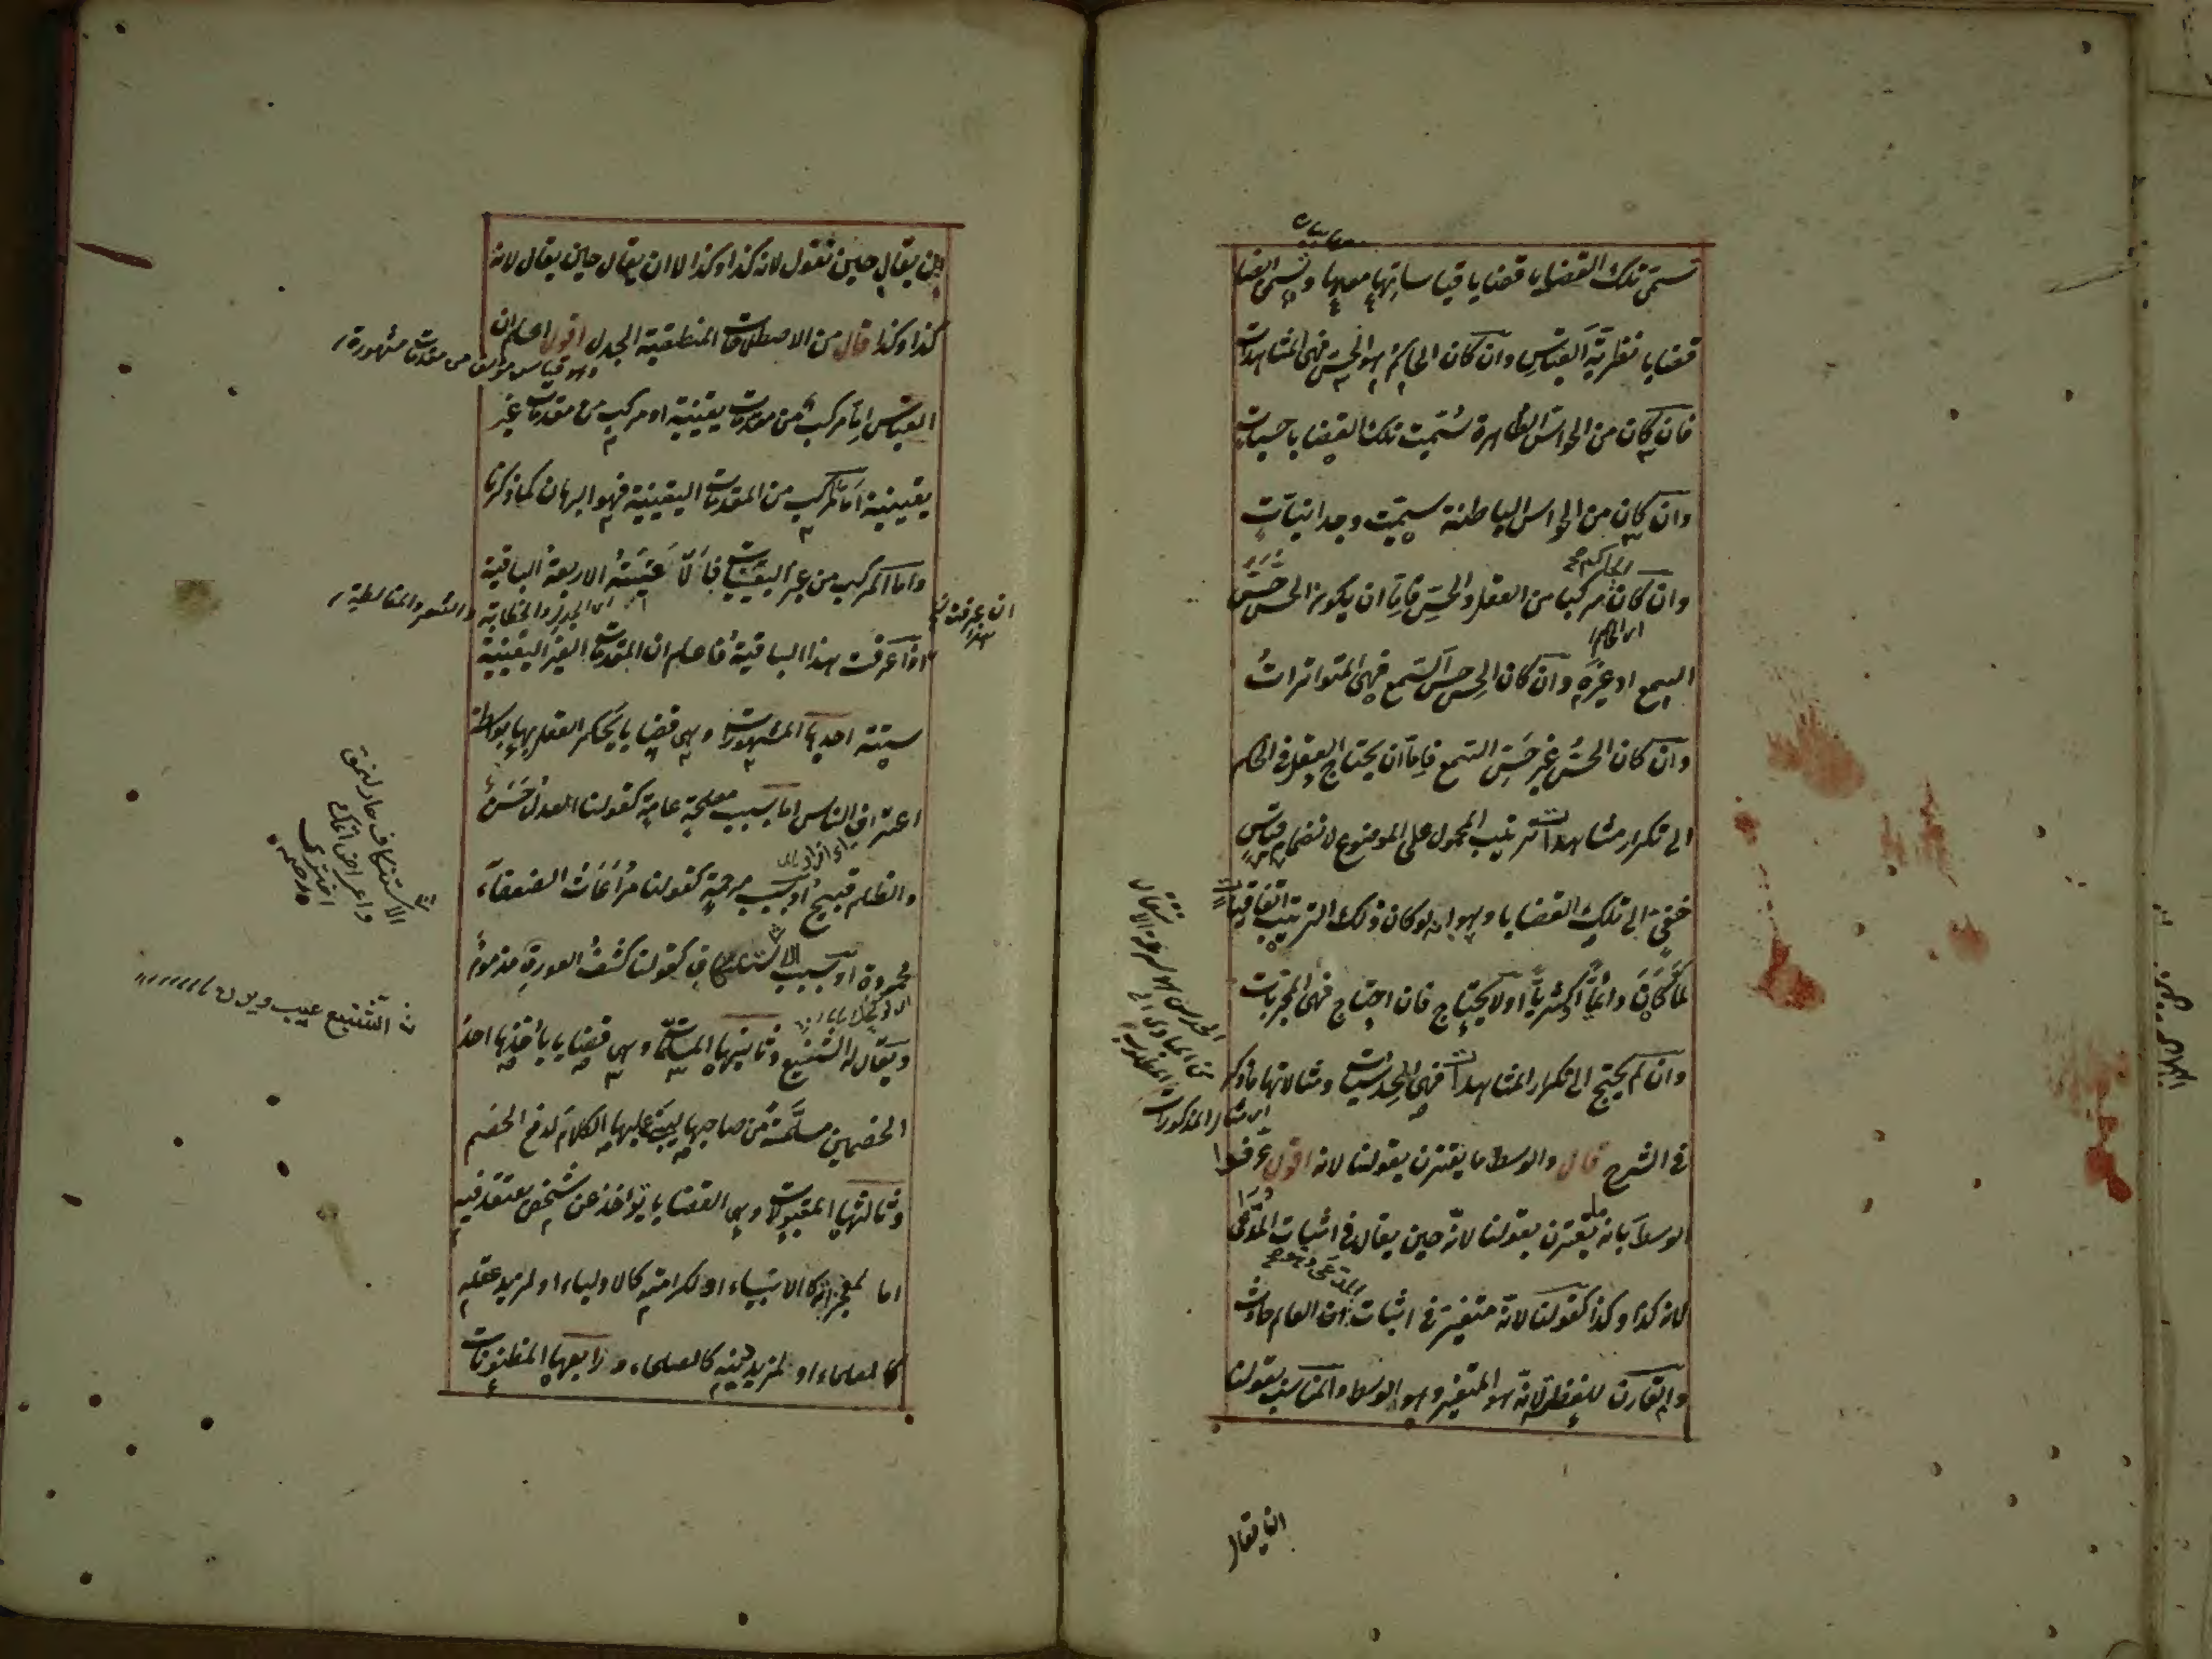 تسمى تلك القضايا قضايا قياساتها معها ويسمى ايضا
قضايا فطرية القياس وان كان الحاكم هو الحس فهى المشاهدات
فان كان من الحواس الظاهرة سميت تلك القضايا حسيات
وان كان من الحواس الباطنة سميت وجدانيات
وان كان مركبا من العقل والحس فاما ان يكون الحس حس
السمع او غيره وان كان الحس حس السمع فهى المتواترات
وان كان الحس غير حس السمع فاما ان يحتاج العقل فى الحكم
الى تكرار مشاهدات ترتيب المحمول على الموضوع لانضمام قياس
خفى الى تلك القضايا وهو انه لو كان ذلك الترتيب اتفاقيا
لما كان دائما او اكثريا او لا يحتاج فان احتاج فهى المجربات
وان لم يحتج الى تكرار المشاهدات فهى الحدسيات ومثالاتها ما ذكر
فى الشرح قال والوسط ما يقترن بقولنا لانه اقول عرفوا
الوسط بانه ما يقترن بقولنا لانه حين يقال فى اثبات المدعى
لانه كذا وكذا كقولنا لانه متغير فى اثبات ان العالم حادث
والمقارن للفظ لانه هو المتغير وهو الوسط والمناسب بقولنا
ان يقال
ان يقال حين نقول لانه كذا وكذا لا ان يقال حين يقال لانه
كذا وكذا قال من الاصطلاحات المنطقية الجدل اقول اعلم ان
وهو قياس مؤلف من مقدمات مشهورة
القياس اما مركب من مقدمات يقينية او مركب من مقدمات غير
يقينية اما المركب من المقدمات اليقينية فهو البرهان كما ذكرنا
واما المركب من غير اليقينيات فالاقيسة الاربعة الباقية
اى الجدل والخطابة والشعر والمغالطة
اذا عرفت هذا الباقية فاعلم ان المقدمات الغير اليقينية
ستة احديها المشهورات وهى قضايا يحكم العقل بها بواسطة
اعتراف الناس اما بسبب مصلحة عامة كقولنا العدل حسن
والظلم قبيح او بسبب مرحمة كقولنا مراعات الضعفاء
محمودة او بسبب الاستنكاف كقولنا كشف العورة مذموم
ويقال له التشنيع وثانيها المسلمات وهى قضايا يأخذها احد
الخصمين مسلمة من صاحبها ليبنى عليها الكلام لدفع الخصم
وثالثها المقبولات وهى القضايا يؤخذ عن شخص معتقد فيه
اما لمعجزاته كالانبياء او لكرامته كالاولياء او لمزيد عقله
كالعلماء او لمزيد دينه كالصلحاء ورابعها المظنونات